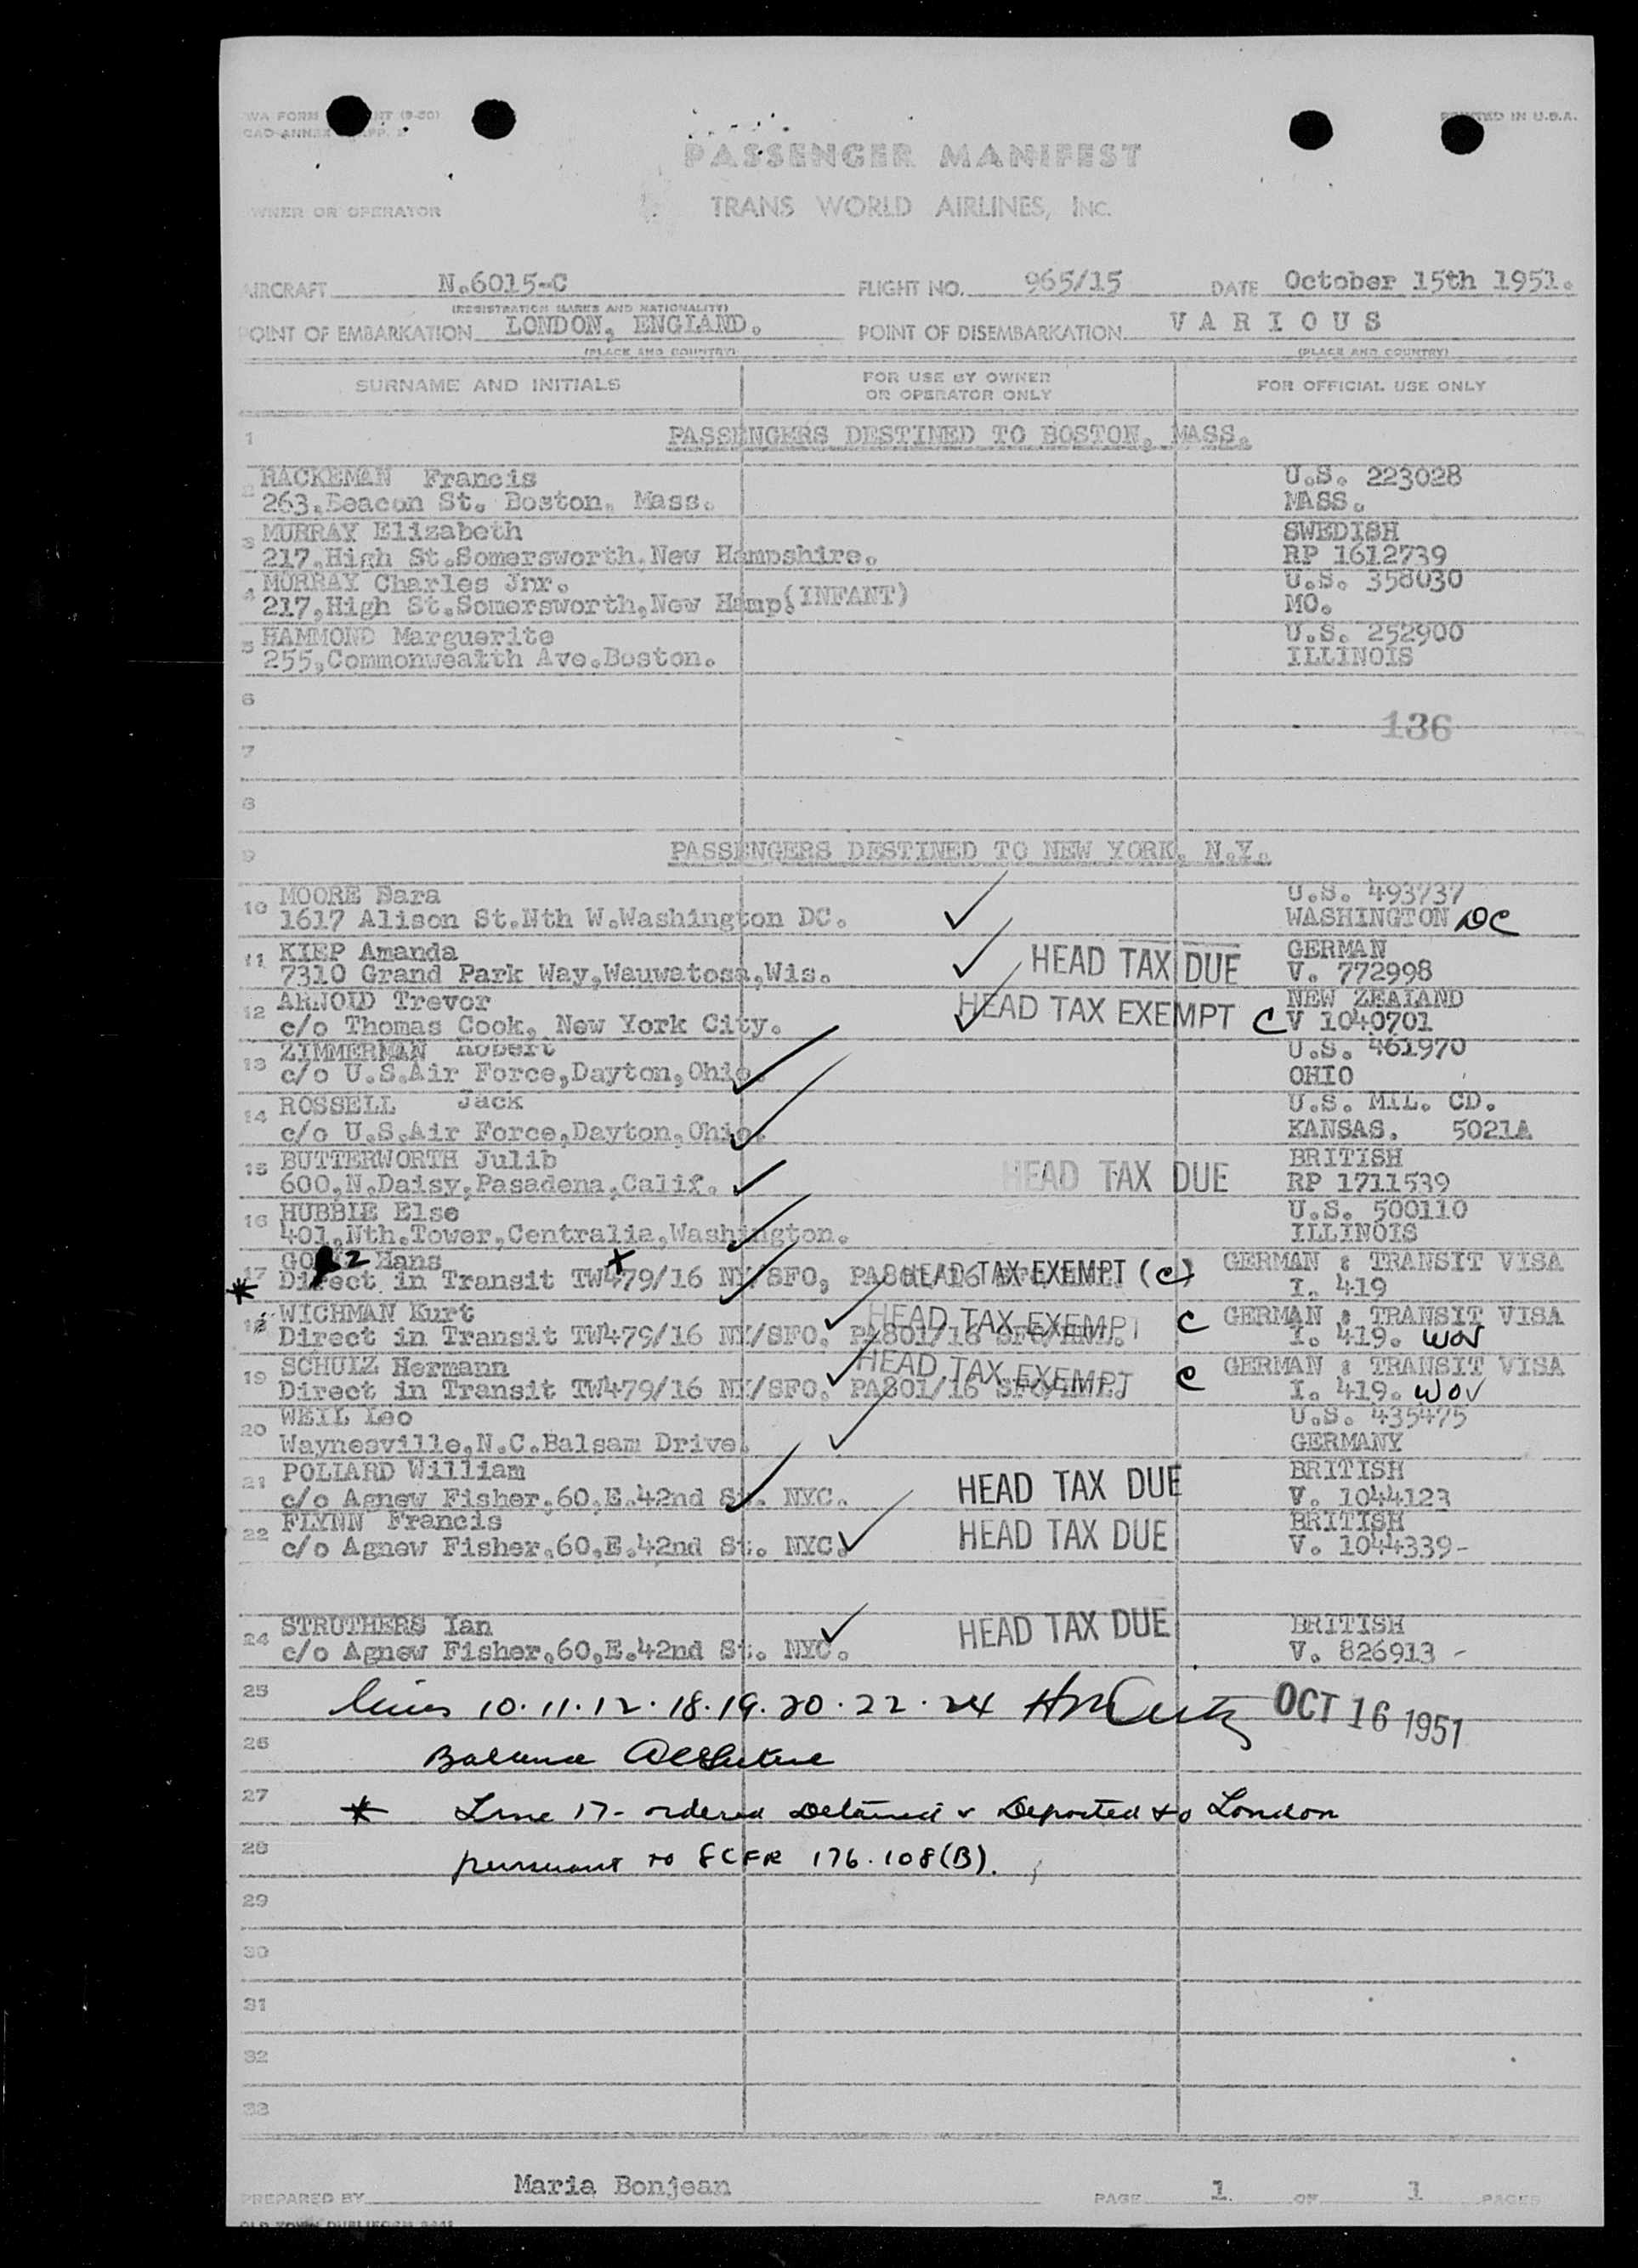 WA FORM NT (9-50)
PRINTED IN U.S.A.
PASSENGER MANIFEST
WNER OR OPERATOR TRANS WORLD AIRLINES, INC.
AIRCRAFT N.6015-C FLIGHT NO. 965/15 DATE October 15th 1951.
(REGISTRATION MARKS AND NATIONALITY)
POINT OF EMBARKATION LONDON, ENGLAND. POINT OF DISEMBARKATION VARIOUS
(PLACE AND COUNTRY) (PLACE AND COUNTRY)
SURNAME AND INITIALS FOR USE BY OWNER OR OPERATOR ONLY FOR OFFICIAL USE ONLY
1 PASSENGERS DESTINED TO BOSTON, MASS.
2 RACKEMAN Francis U.S. 223028
263,Beacon St. Boston, Mass. MASS.
3 MURRAY Elizabeth SWEDISH
217,High St.Somersworth,New Hampshire. RP 1612739
4 MURRAY Charles Jnr. U.S. 358030
217,High St.Somersworth,New Hamp. (INFANT) MO.
5 HAMMOND Marguerite U.S. 252900
255,Commonwealth Ave.Boston. ILLINOIS
6
136
7
8
9 PASSENGERS DESTINED TO NEW YORK, N.Y.
10 MOORE Sara U.S. 493737
1617 Alison St.Nth W.Washington DC. WASHINGTON DC
11 KIEP Amanda HEAD TAX DUE GERMAN
7310 Grand Park Way,Wauwatosa,Wis. V. 772998
12 ARNOLD Trevor HEAD TAX EXEMPT C NEW ZEALAND
c/o Thomas Cook, New York City. V 1040701
13 ZIMMERMAN Robert U.S. 461970
c/o U.S.Air Force,Dayton,Ohio. OHIO
14 ROSSELL Jack U.S. MIL. CD.
c/o U.S.Air Force,Dayton,Ohio. KANSAS. 5021A
15 BUTTERWORTH Julib HEAD TAX DUE BRITISH
600,N.Daisy,Pasadena,Calif. RP 1711539
16 HUBBIE Else U.S. 500110
401,Nth.Tower,Centralia,Washington. ILLINOIS
17 Hans HEAD TAX EXEMPT (C) GERMAN : TRANSIT VISA
* Direct in Transit TW479/16 NY/SFO, I. 419
18 WICHMAN Kurt HEAD TAX EXEMPT C GERMAN : TRANSIT VISA
Direct in Transit TW479/16 NY/SFO. PA801/16 I. 419. WOV
19 SCHULZ Hermann HEAD TAX EXEMPT C GERMAN : TRANSIT VISA
Direct in Transit TW479/16 NY/SFO. PA801/16 I. 419. WOV
20 WEIL Leo U.S. 435475
Waynesville,N.C.Balsam Drive. GERMANY
21 POLLARD William HEAD TAX DUE BRITISH
c/o Agnew Fisher,60,E.42nd St. NYC. V. 1044123
22 FLYNN Francis HEAD TAX DUE BRITISH
c/o Agnew Fisher,60,E.42nd St. NYC. V. 1044339-
24 STRUTHERS Ian HEAD TAX DUE BRITISH
c/o Agnew Fisher,60,E.42nd St. NYC. V. 826913 -
25 lines 10.11.12.18.19.20.22.24 OCT 16 1951
26 Balance
27 * Line 17 - ordered Detained & Deported to London
28 pursuant to 8CFR 176.108(B).
29
30
31
32
33
PREPARED BY Maria Bonjean PAGE 1 OF 1 PAGES